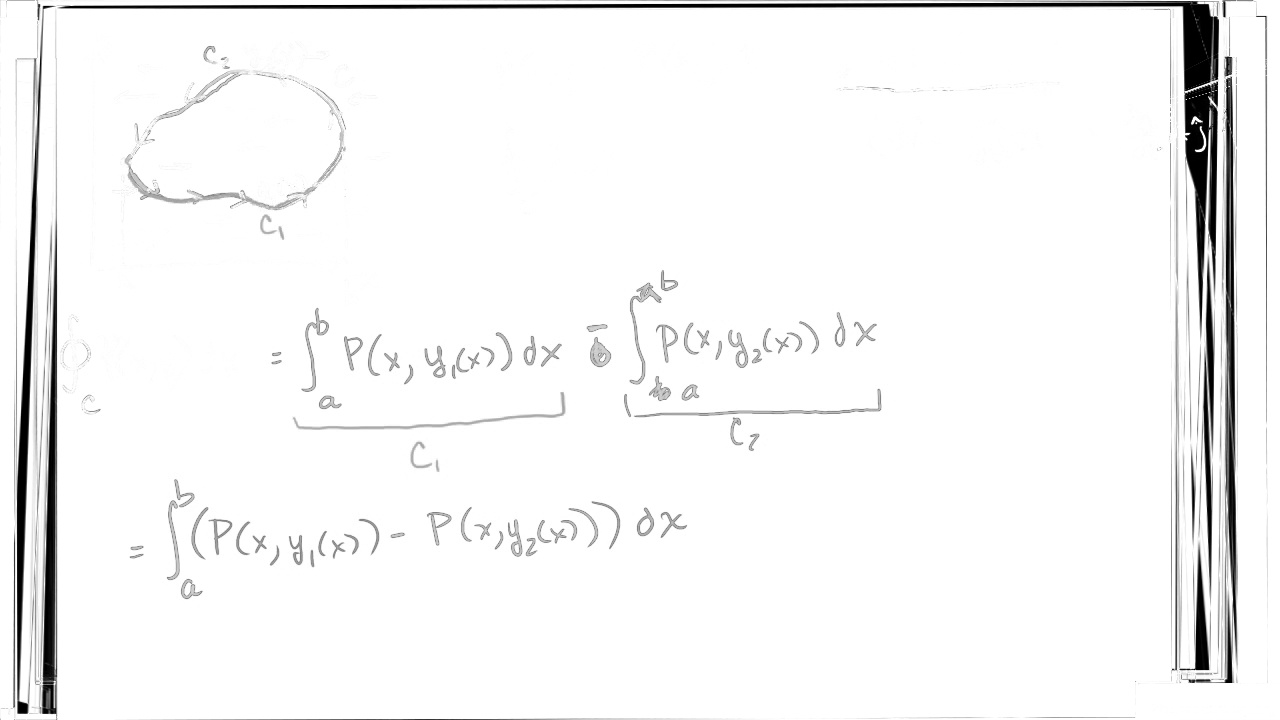 C₂
ĵ
C₁
= ∫ₐᵇ P(x, y₁(x)) dx - ∫ₐᵇ P(x, y₂(x)) dx
C
C₁ C₂
= ∫ₐᵇ (P(x, y₁(x)) - P(x, y₂(x))) dx